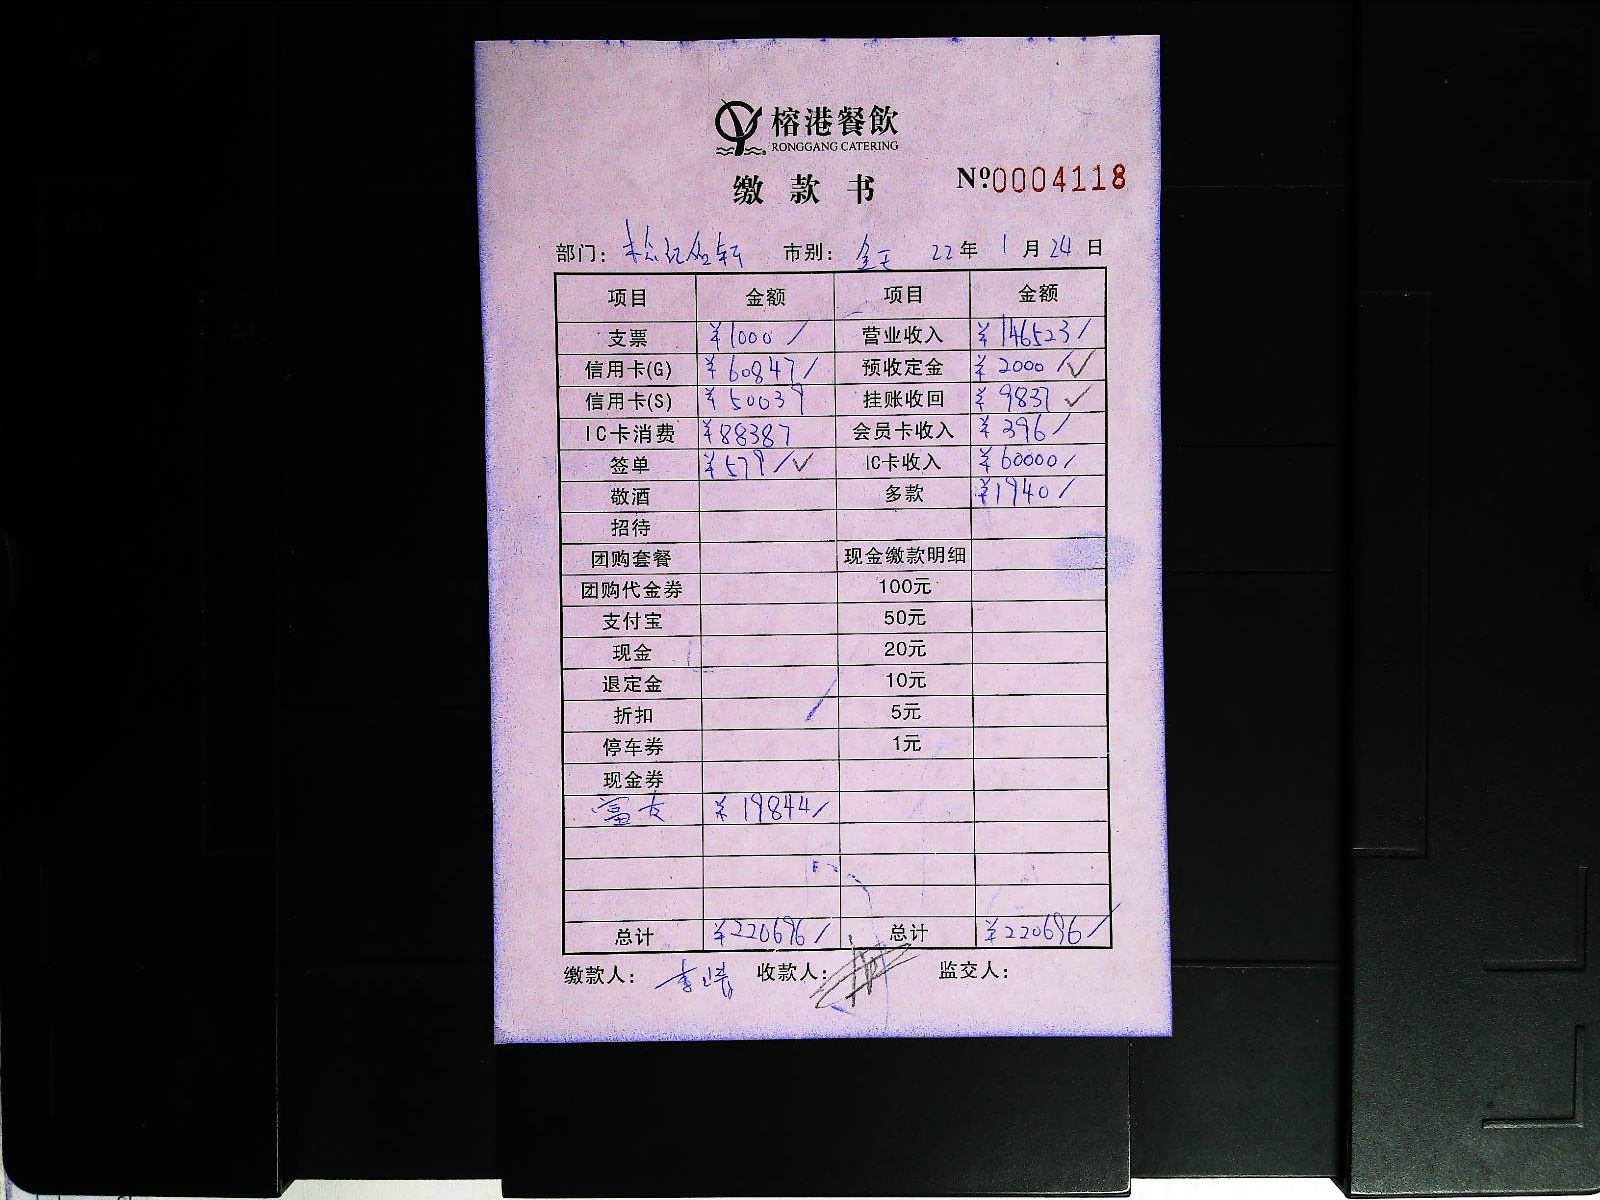 榕港餐飲
RONGGANG CATERING
缴款书 Nº0004118
部门： 市别： 22年 1月24日
项目 金额 项目 金额
支票 ¥1000 营业收入 ¥146523
信用卡(G) ¥60847 预收定金 ¥2000
信用卡(S) ¥50039 挂账收回 ¥9837
IC卡消费 ¥88387 会员卡收入 ¥396
签单 ¥579 IC卡收入 ¥60000
敬酒 多款 ¥1940
招待
团购套餐 现金缴款明细
团购代金券 100元
支付宝 50元
现金 20元
退定金 10元
折扣 5元
停车券 1元
现金券
富友 ¥19844
总计 ¥220696 总计 ¥220696
缴款人： 收款人： 监交人：